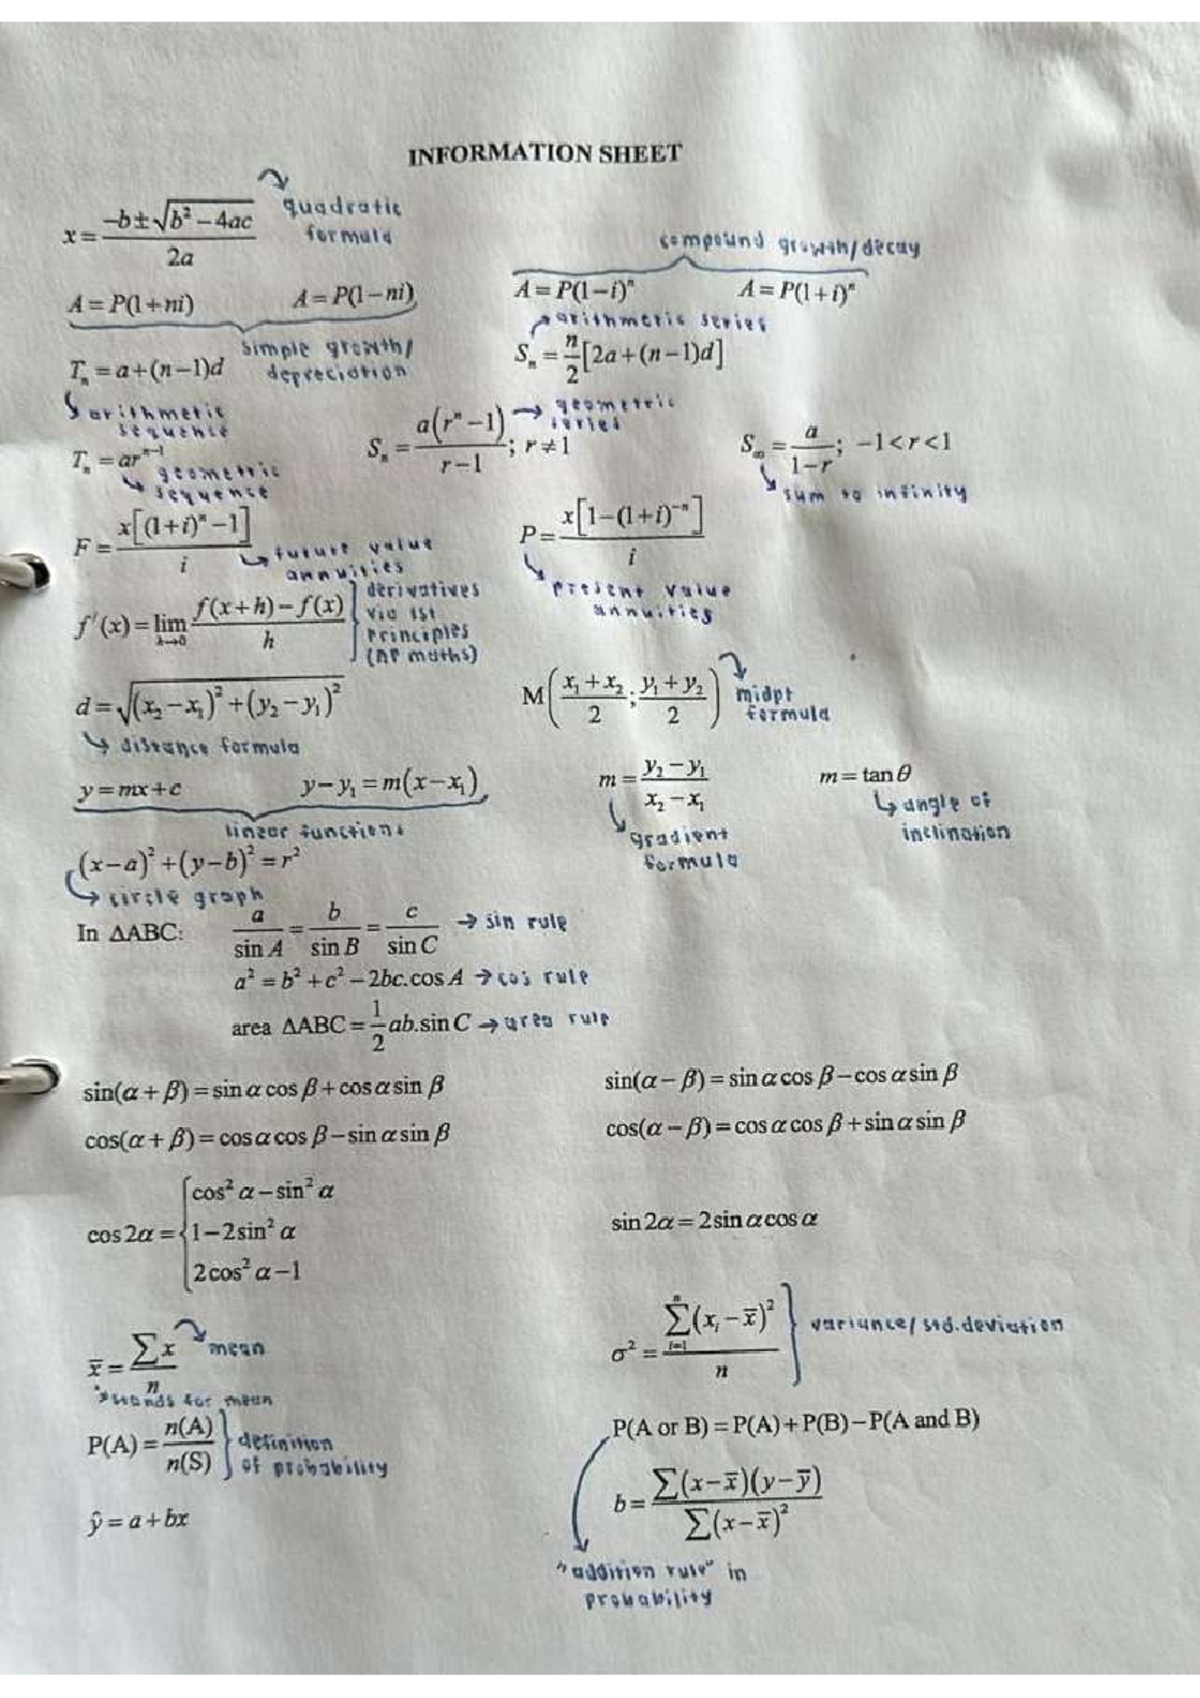 INFORMATION SHEET
x = \frac{-b \pm \sqrt{b^2 - 4ac}}{2a}
quadratic
formula
compound growth/decay
A = P(1 + ni)
A = P(1 - ni)
A = P(1 - i)^n
A = P(1 + i)^n
simple growth/
depreciation
arithmetic series
T_n = a + (n - 1)d
S_n = \frac{n}{2}[2a + (n - 1)d]
arithmetic
sequence
geometric
series
T_n = ar^{n-1}
S_n = \frac{a(r^n - 1)}{r - 1}; r ≠ 1
S_∞ = \frac{a}{1 - r}; -1 < r < 1
geometric
sequence
sum to infinity
F = \frac{x[(1 + i)^n - 1]}{i}
P = \frac{x[1 - (1 + i)^{-n}]}{i}
future value
annuities
present value
annuities
f'(x) = \lim_{h→0} \frac{f(x + h) - f(x)}{h}
derivatives
via 1st
principles
(AP maths)
d = \sqrt{(x_2 - x_1)^2 + (y_2 - y_1)^2}
M(\frac{x_1 + x_2}{2}; \frac{y_1 + y_2}{2})
midpt
formula
distance formula
y = mx + c
y - y_1 = m(x - x_1)
m = \frac{y_2 - y_1}{x_2 - x_1}
m = tan θ
linear functions
gradient
formula
angle of
inclination
(x - a)^2 + (y - b)^2 = r^2
circle graph
In ΔABC: \frac{a}{sin A} = \frac{b}{sin B} = \frac{c}{sin C} → sin rule
a^2 = b^2 + c^2 - 2bc.cos A → cos rule
area ΔABC = \frac{1}{2}ab.sin C → area rule
sin(α + β) = sin α cos β + cos α sin β
sin(α - β) = sin α cos β - cos α sin β
cos(α + β) = cos α cos β - sin α sin β
cos(α - β) = cos α cos β + sin α sin β
cos 2α = { cos^2 α - sin^2 α
1 - 2 sin^2 α
2 cos^2 α - 1
sin 2α = 2 sin α cos α
\bar{x} = \frac{\sum x}{n}
mean
stands for mean
σ^2 = \frac{\sum_{i=1}^{n}(x_i - \bar{x})^2}{n}
variance/std.deviation
P(A) = \frac{n(A)}{n(S)}
definition
of probability
P(A or B) = P(A) + P(B) - P(A and B)
ŷ = a + bx
b = \frac{\sum(x - \bar{x})(y - \bar{y})}{\sum(x - \bar{x})^2}
"addition rule" in
probability